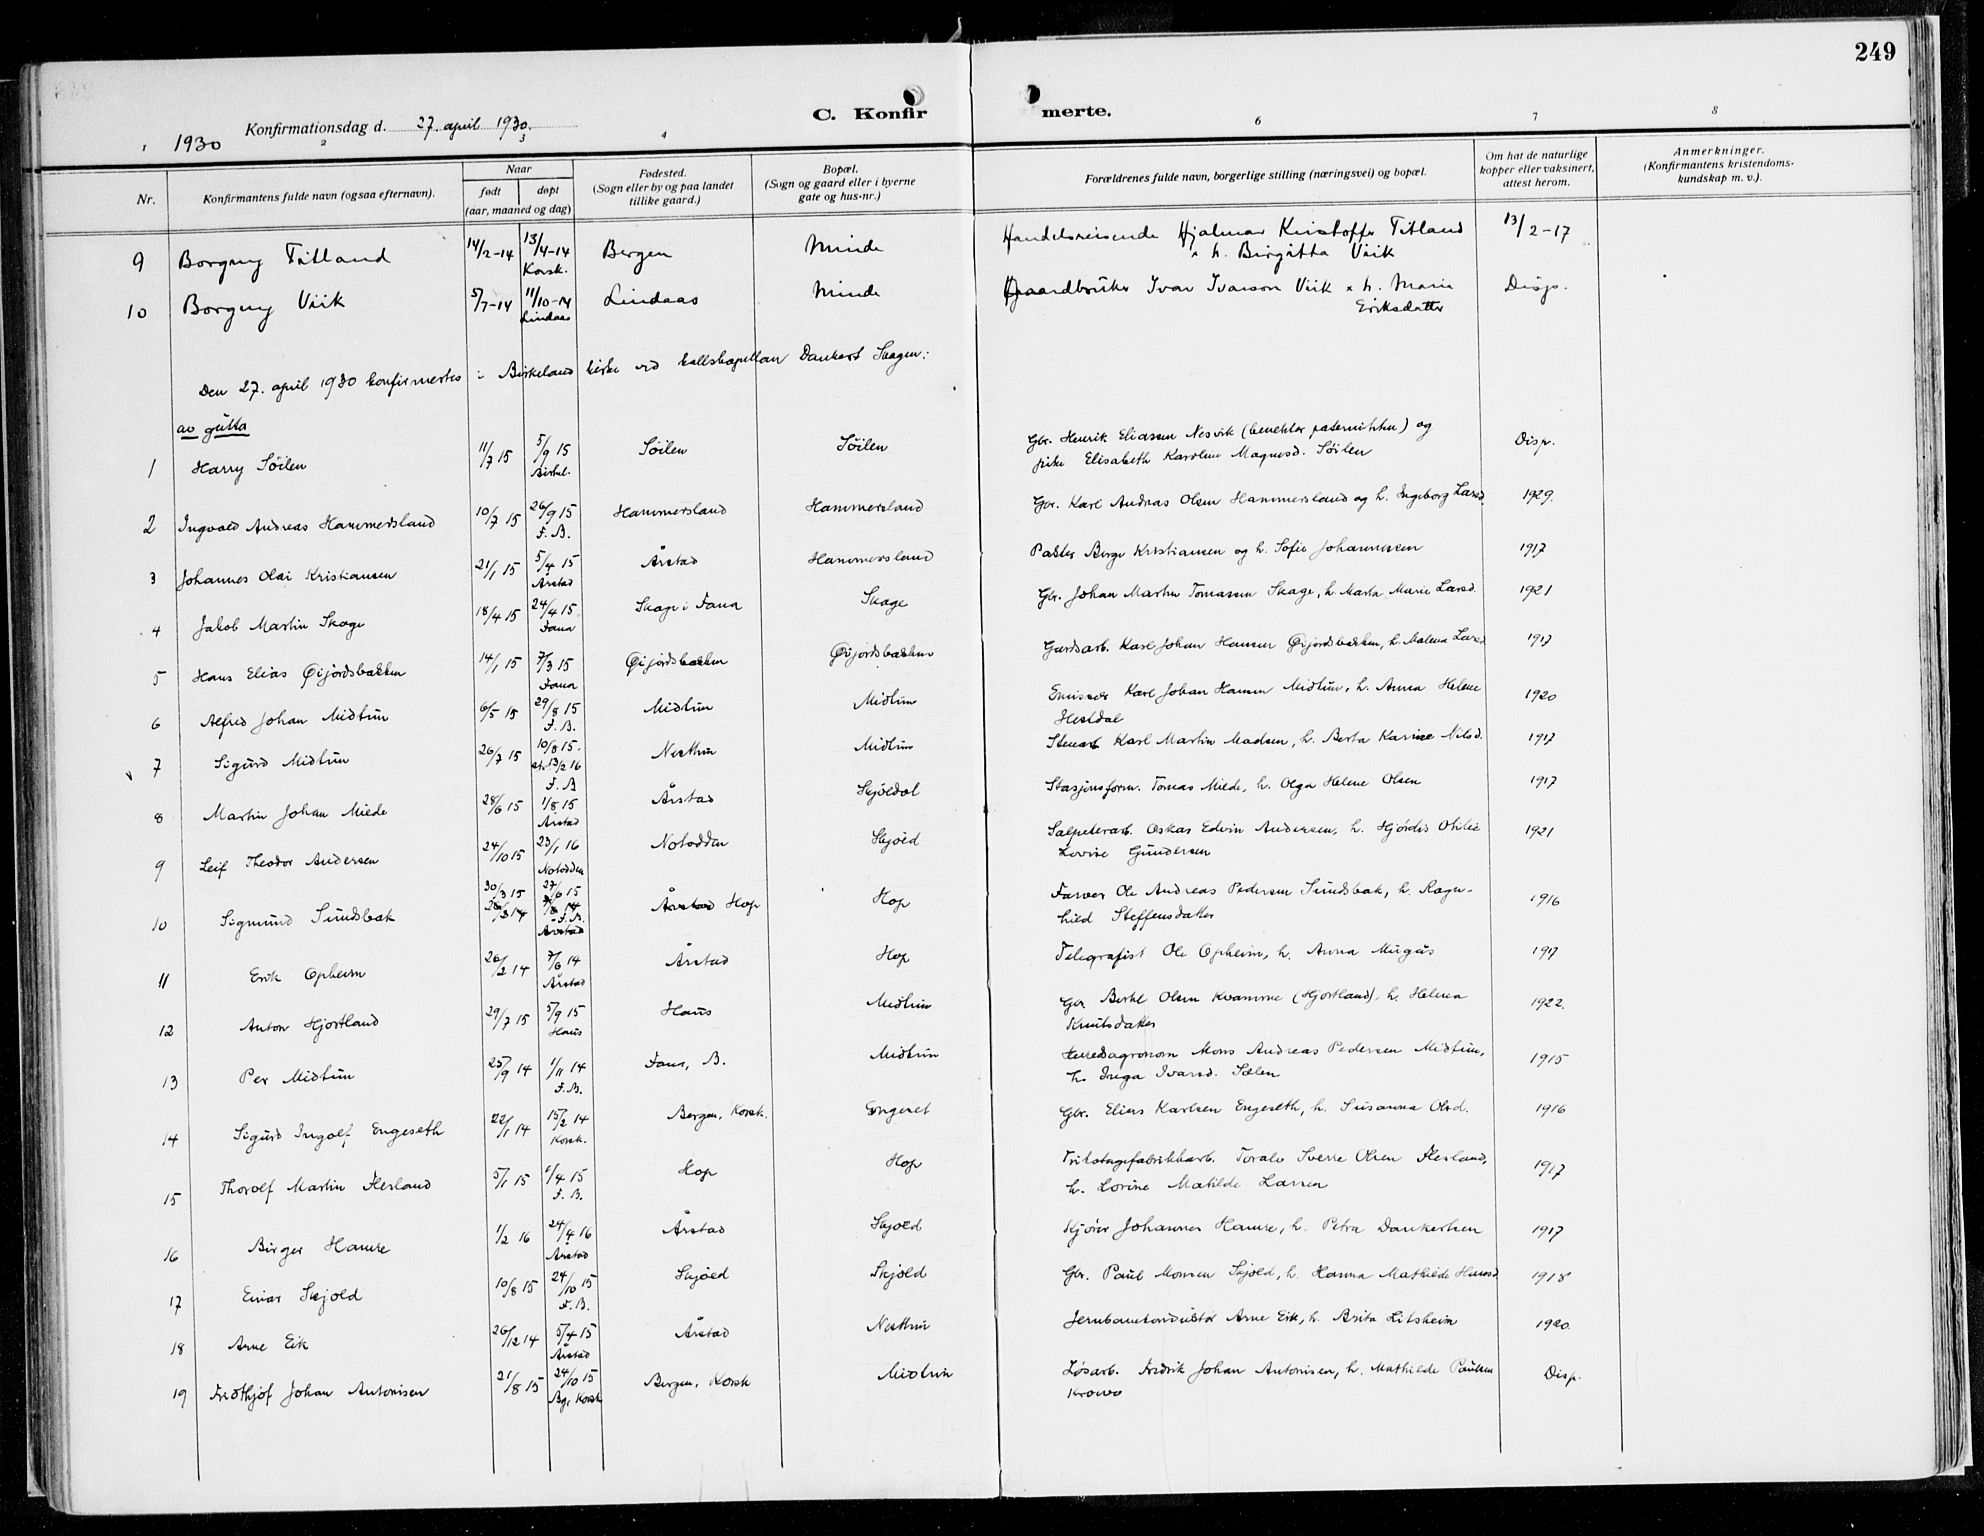 249
C. Konfirmerte.
1930 Konfirmationsdag d. 27. april 1930.
1 2 3 4 6 7 8
Nr. Konfirmantens fulde navn (ogsaa efternavn). Naar født døpt (aar, maaned og dag) Fødested. (Sogn eller by og paa landet tillike gaard.) Bopæl. (Sogn og gaard eller i byerne gate og hus-nr.) Forældrenes fulde navn, borgerlige stilling (næringsvei) og bopæl. Om hat de naturlige kopper eller vaksinert, attest herom. Anmerkninger. (Konfirmantens kristendoms-kundskap m. v.)
9 Borgny Titland 14/2-14 13/4-14 Korsk. Bergen Minde Handelsreisende Hjalmar Kristoffer Titland h. Birgitta Viik 13/2-17
10 Borgny Viik 5/7-14 11/10-14 Lindaas Lindaas Minde Gaardbruker Ivar Ivarson Viik h. Marie Eriksdatter Disp.
Den 27. april 1930 konfirmertes i Birkeland kirke ved kallskapellan Dankert Skagen:
av gutta
1 Harry Søilen 11/7 15 5/9 15 Birkel. Søilen Søilen Gbr. Henrik Eliassen Nesvik (benekter paterniteten) og pike Elisabeth Karoline Magnusd. Søilen Disp.
2 Ingvald Andreas Hammersland 10/7 15 26/9 15 F. B. Hammersland Hammersland Gbr. Karl Andreas Olsen Hammersland og h. Ingeborg Larsd. 1929.
3 Johannes Olai Kristiansen 21/1 15 5/4 15 Årstad Årstad Hammersland Børge Kristiansen og h. Sofie Johannessen 1917
4 Jakob Martin Skage 18/4 15 24/4 15 Fana Skage i Fana Skage Gbr. Johan Martin Tomassen Skage, h. Marta Marie Larsd. 1921
5 Hans Elias Øijordsbakken 14/1 15 7/3 15 Fana Øijordsbakken Øijordsbakken Gardsarb. Karl Johan Hansen Øijordsbakken, h. Malena Larsd 1917
6 Alfred Johan Midtun 6/5 15 29/8 15 F. B. Midtun Midtun Emissær Karl Johan Hansen Midtun, h. Anna Helene Hesldal 1920
7 Sigurd Midtun 26/7 15 10/8 15. st. 13/2 16 F. B Nesttun Midtun Stenarb Karl Martin Madsen, h. Berta Karine Nilsd. 1917
8 Martin Johan Milde 28/6 15 1/8 15 Årstad Årstad Skjoldal Stasjonsform. Tomas Milde, h. Olga Helene Olsen 1917
9 Leif Theodor Andersen 24/10 15 23/1 16 Notodden Notodden Skjold Salpeterarb. Oskar Edvin Andersen, h. Hjørdis Otilie Lovise Gundersen 1921
10 Sigmund Sundsbak 30/3 15 27/6 15 F. B. Årstad Årstad Hop Hop Farver Ole Andreas Pedersen Sundsbak, h. Ragnhild Steffensdatter 1916
11 Erik Opheim 26/2 14 7/6 14 Årstad Årstad Hop Telegrafist Ole Opheim, h. Anna Mugås 1917
12 Anton Hjortland 29/7 15 5/9 15 Haus Haus Midtun Gbr Bertel Olsen Kvamme (Hjortland), h. Helena Knutsdatter 1922.
13 Per Midtun 25/9 14 1/11 14 F. B. Fana, B. Midtun Herredsagronom Mons Andreas Pedersen Midtun, h. Inga Ivarsd. Sælen 1915
14 Sigurd Ingolf Engeseth 22/1 14 15/2 14 Korsk. Bergen, Korsk. Engeset Gbr. Elias Karlsen Engeseth, h. Susanna Olsd. 1916
15 Thorolf Martin Flesland 5/1 15 /4 15 F. B. Hop Hop Trikotagefabrikkarb. Toralv Sverre Olsen Flesland, h. Lovine Matilde Larsen 1917
16 Birger Hamre 1/2 16 24/4 16 Årstad Årstad Skjold Kjører Johannes Hamre, h. Petra Dankertsen 1917
17 Einar Skjold 10/8 15 24/10 15 F. B. Skjold Skjold Gbr. Paul Monsen Skjold, h. Hanna Mathilde Hansd 1918
18 Arne Eik 26/12 14 5/4 15 Årstad Årstad Nesttun Jernbanekonduktør Arne Eik, h. Brita Litsheim 1920.
19 Fridthjof Johan Antonisen 21/8 15 24/10 15 Bg. Korsk Bergen, Korsk Midtun Løsarb. Fredrik Johan Antonisen, h. Mathilde Paulsen Disp.